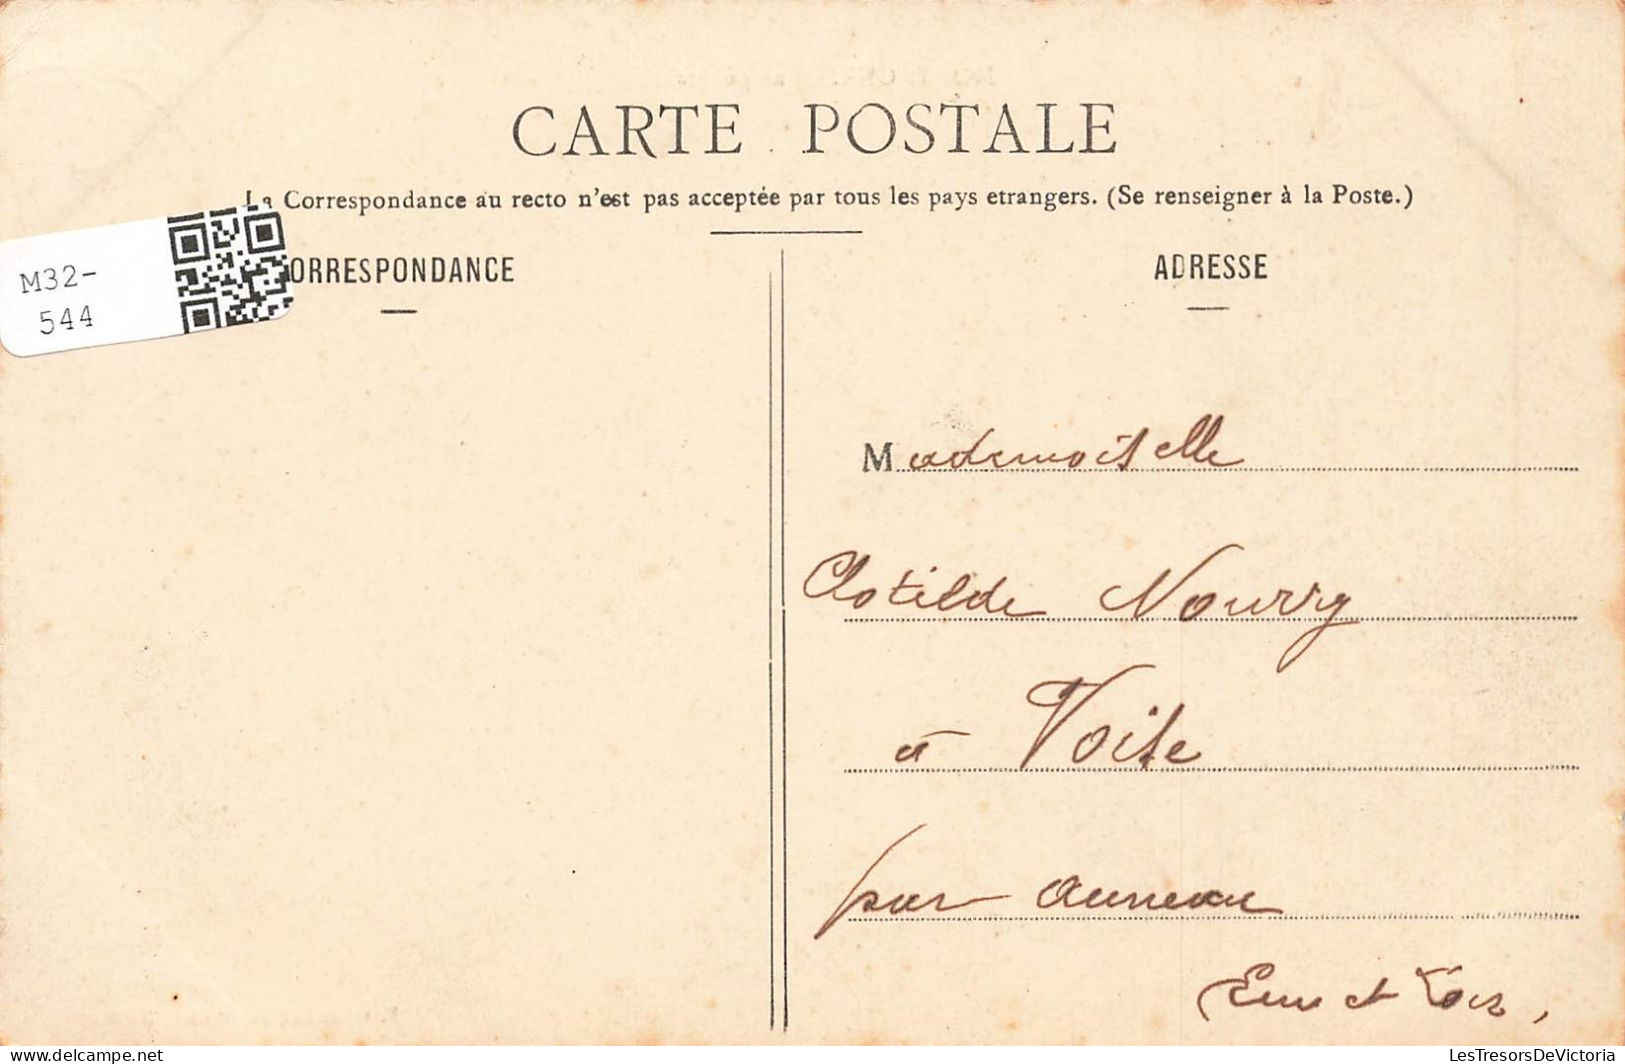 CARTE POSTALE
La Correspondance au recto n'est pas acceptée par tous les pays etrangers. (Se renseigner à la Poste.)
M32-
544
ORRESPONDANCE
ADRESSE
Mademoiselle
Clotilde Nourry
à Voise
par auneau
Eure et Loir,
host-dcp.com
LesTresorsDeVictoria